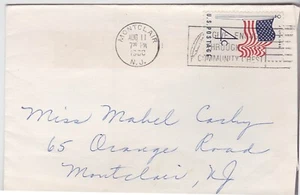 MONTCLAIR
AUG 11
7 PM
N.J.
THROUGH
COMMUNITY CHEST
U.S. POSTAGE
Miss Mabel Cosby
65 Orange Road
Montclair, NJ